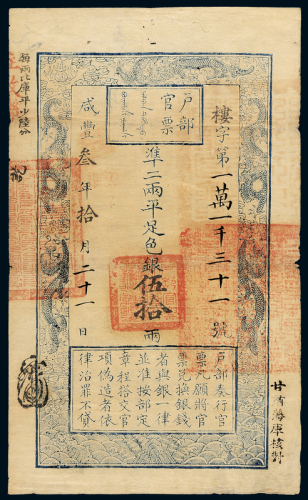 戶部
官票
樓字第一萬一千三十一號
準二兩平足色銀伍拾兩
咸豐叁年拾月二十一日
戶部奏行官
票凡願將官
票兌換銀錢
者與銀一律
並準按部定
章程搭交官
項偽造者依
律治罪不貸
每兩比庫平少陸分
甘省藩庫核對